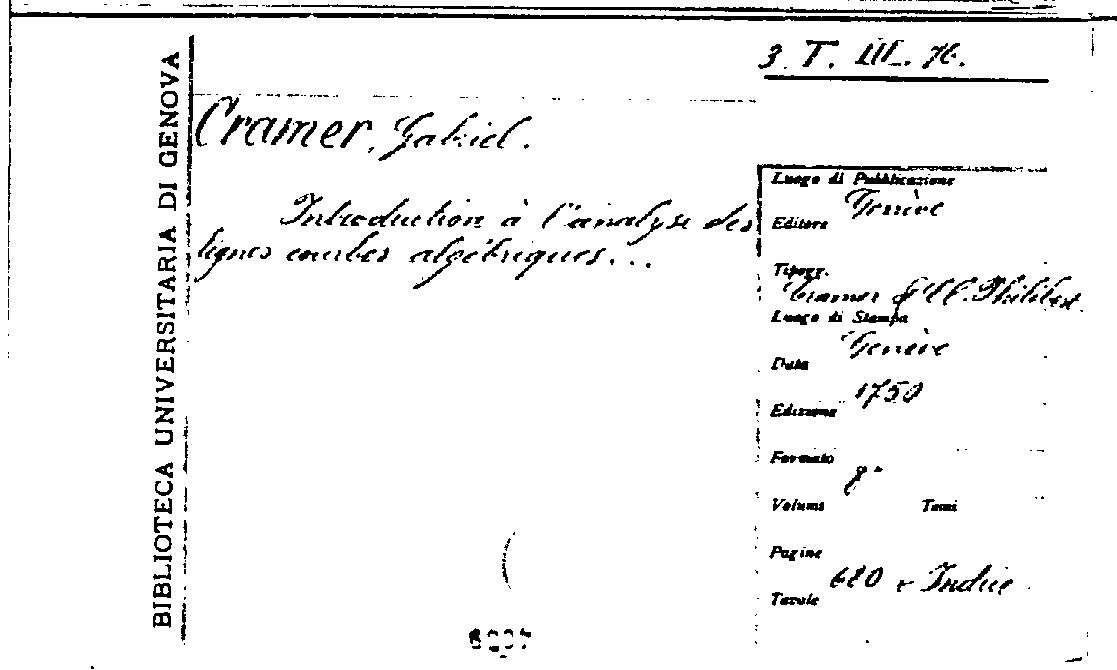 3. T. III. 76.
BIBLIOTECA UNIVERSITARIA DI GENOVA
Cramer, Gabriel.
Introduction à l'analyse des
lignes courbes algébriques...
Luogo di Pubblicazione
Genève
Editore
Tipogr.
Cramer & Cl. Philibert
Luogo di Stampa
Genève
Data
1750
Edizione
Formato
8°
Volumi Tomi
Pagine
680 e Indice
Tavole